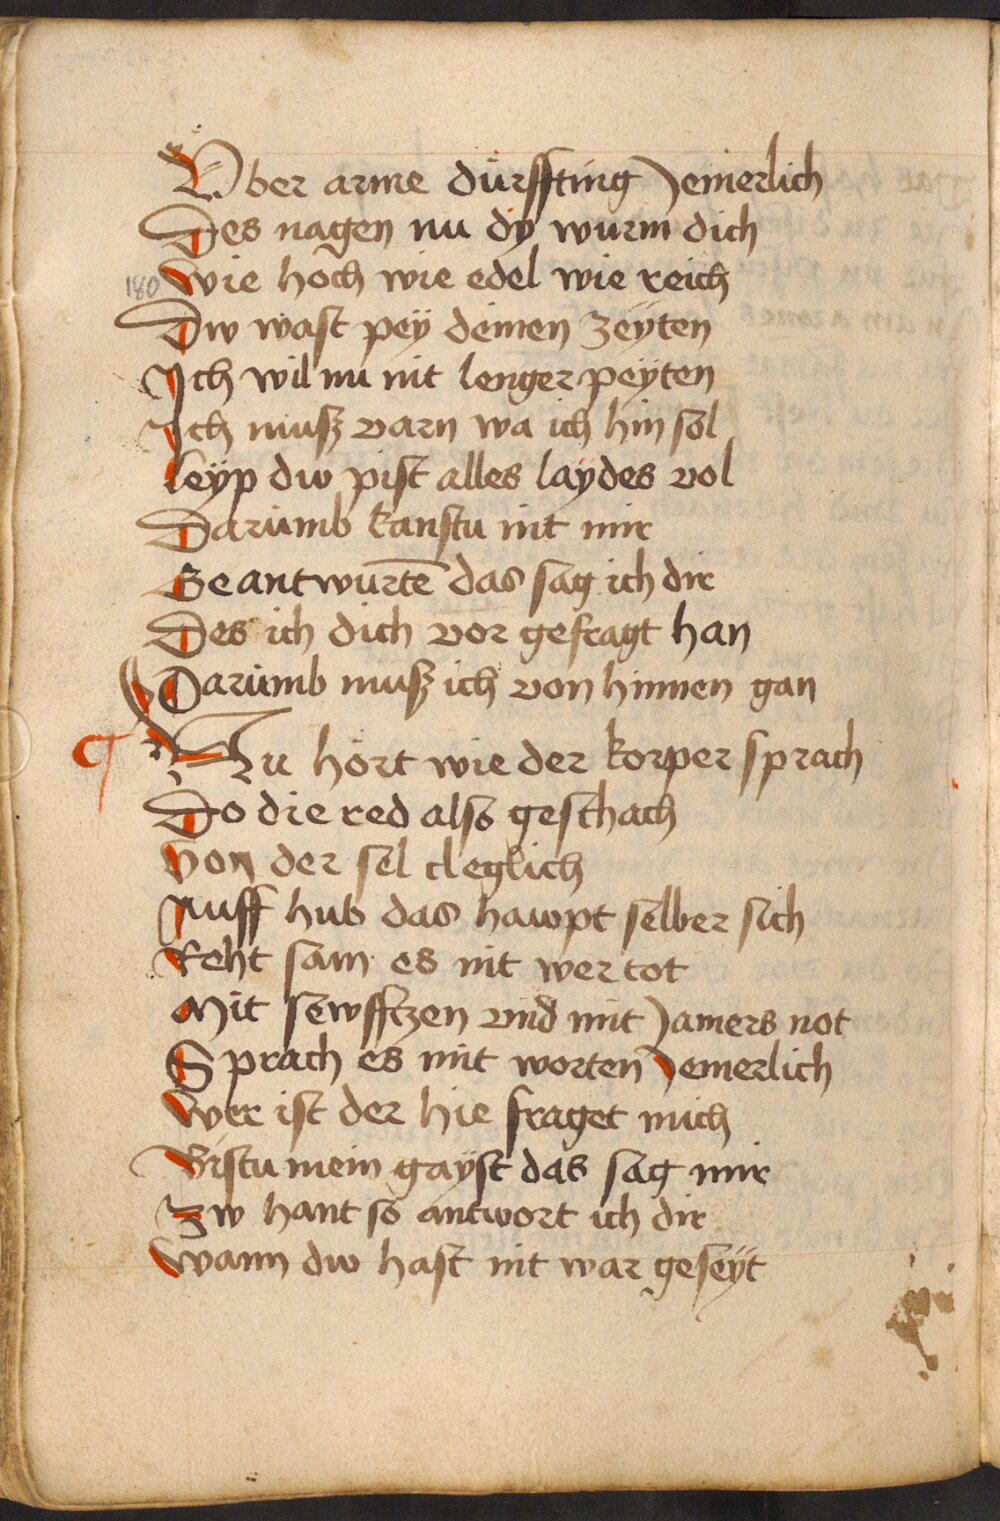 Vber arme dürffting Jemerlich
Des nagen nu dy wurm dich
180 wie hoch wie edel wie reich
Dw wast pey deinen zeyten
Ich wil nu nit lenger peyten
Ich musz varn wa ich hin sol
leyp dw pist alles laydes vol
Darumb kanstu nit mir
Geantwurtē das sag ich dir
Des ich dich vor gefragt han
Darumb musz ich von hinnen gan
Nu hort wie der korper sprach
Do die red also geschach
von der sel cleglich
Auff hub das hawpt selber sich
Reht sam es nit wer tot
Mit sewfftzen vnd mit Jamers not
Sprach es mit worten Jemerlich
wer ist der hie fraget mich
Bistu mein gayst das sag mir
Zw hant so antwort ich dir
wann dw hast nit war geseyt